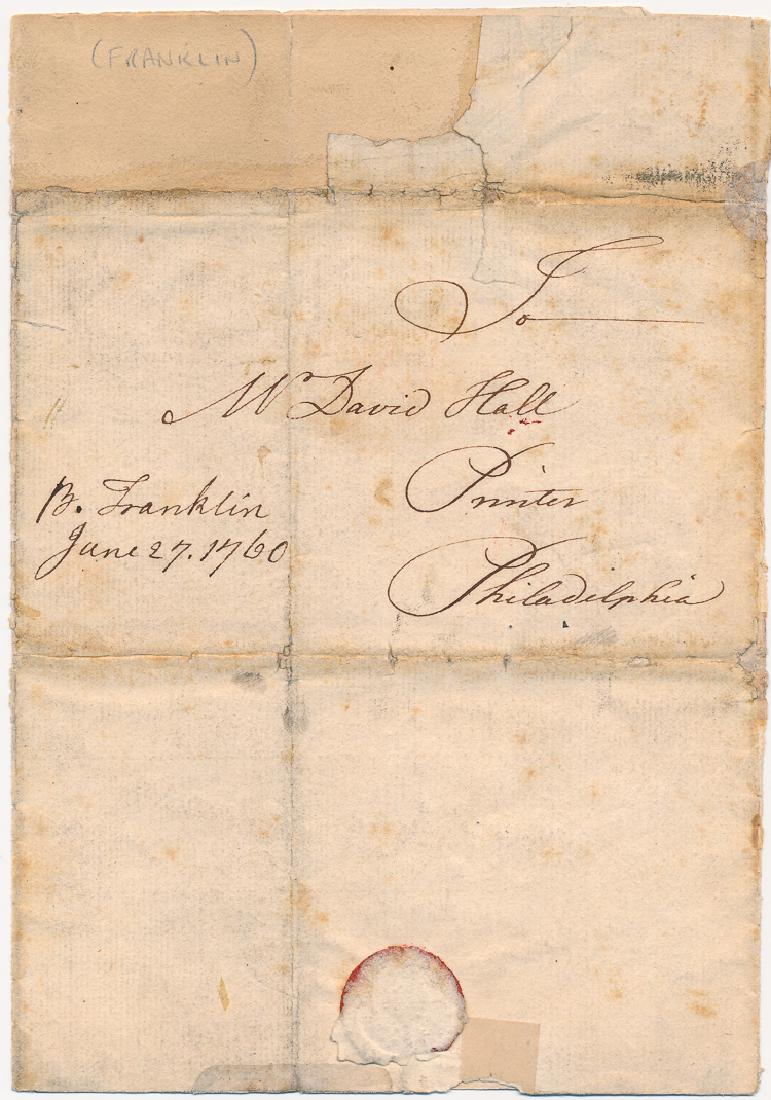 (FRANKLIN)
To
Mr David Hall
Printer
Philadelphia
B. Franklin
June 27. 1760